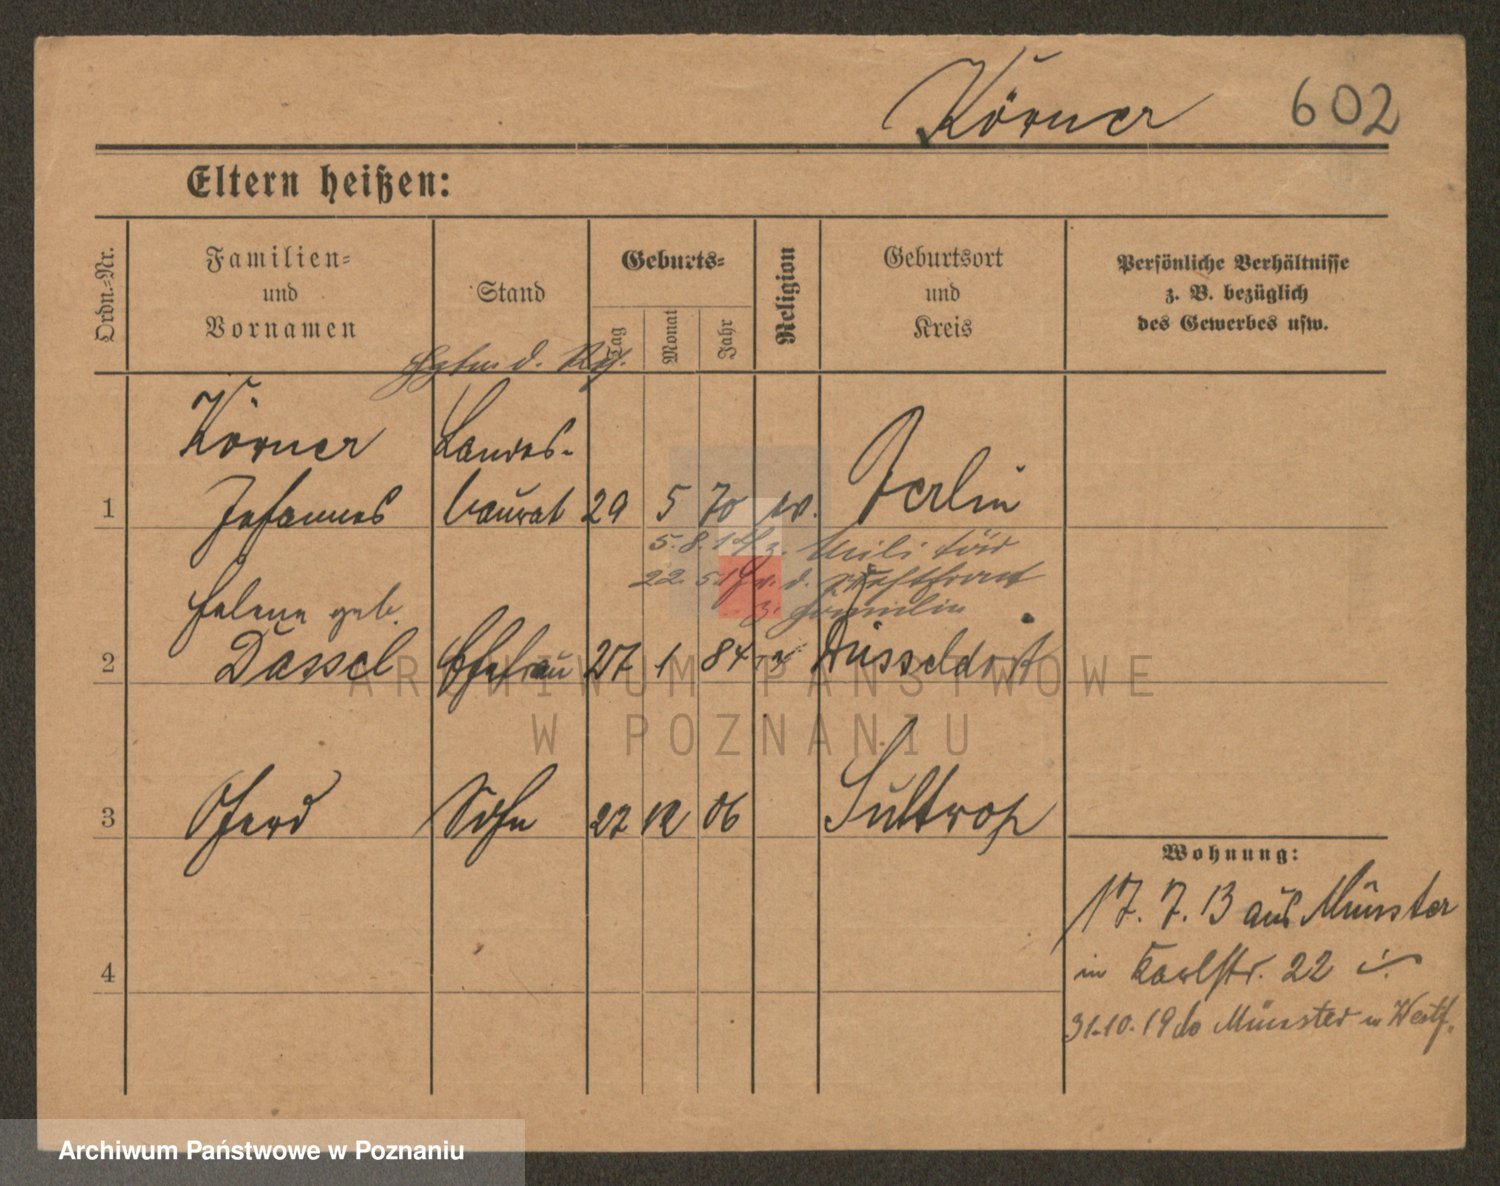 Körner 602
Eltern heißen:
Ordn.-Nr.
Familien-
und
Vornamen
Stand
Geburts-
Tag
Monat
Jahr
Religion
Geburtsort
und
Kreis
Persönliche Verhältnisse
z. B. bezüglich
des Gewerbes usw.
Hptm d.
Körner Landes-
1 Johannes baurat 29 5 70 ev. Berlin
5.8.14 z. Militär
22. 5. v. d. Westfront
z. Familie
Helene geb.
2 Dassel Ehefrau 27 1 84 Düsseldorf
3 Ferd Sohn 27 12 06 Suttrop
Wohnung:
17. 7. 13 aus Münster
4 in Karlstr. 22
31.10.19 Münster in Westf.
ARCHIWUM PAŃSTWOWE
W POZNANIU
Archiwum Państwowe w Poznaniu